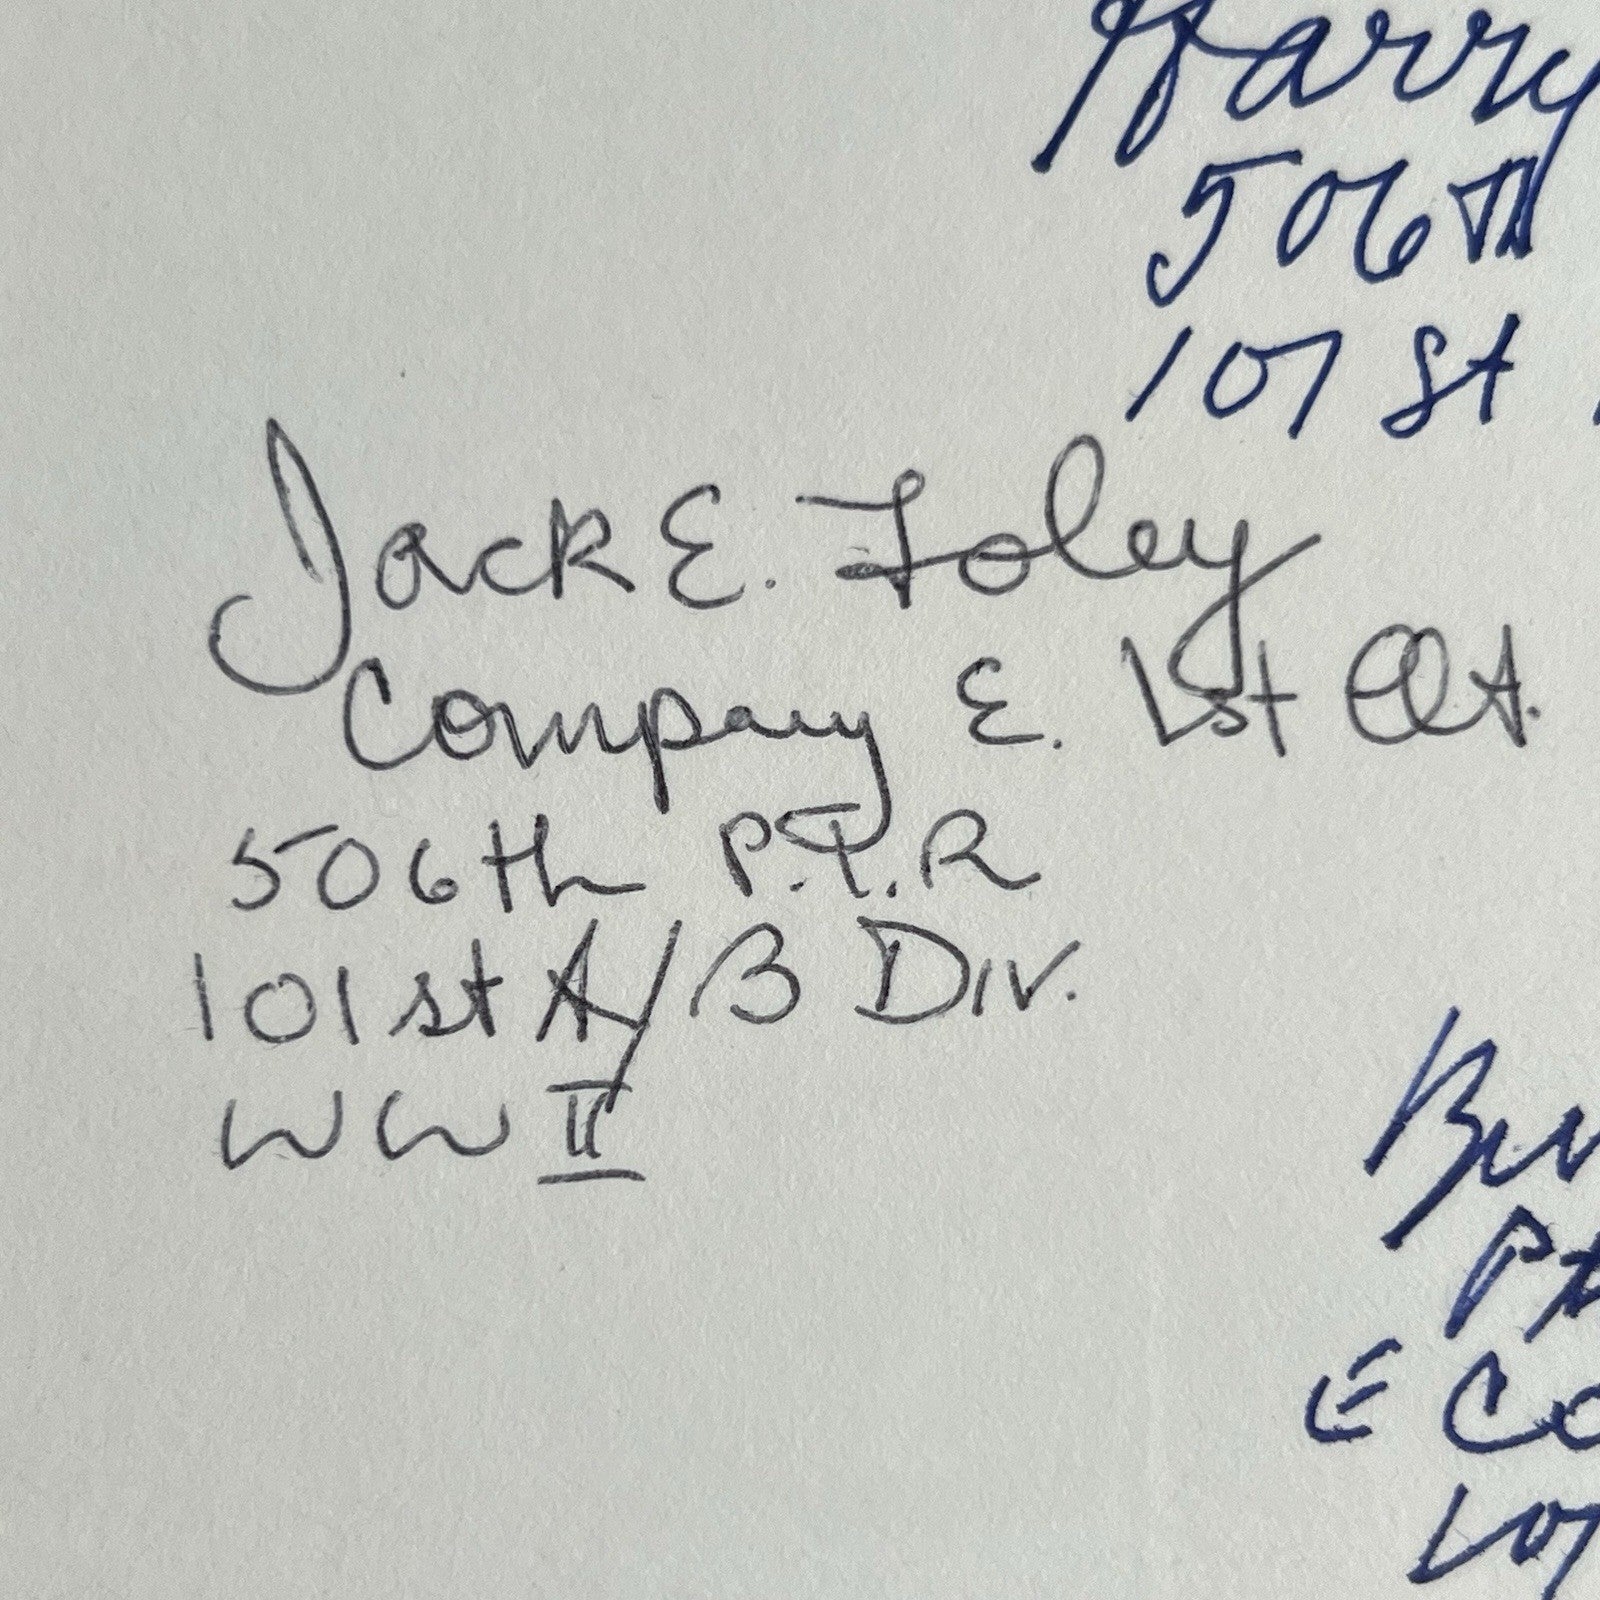 Harry
506th
101 st
Jack E. Foley
Company E. 1st Lt.
506th P.I.R
101st A/B Div.
WW II
E Co
101